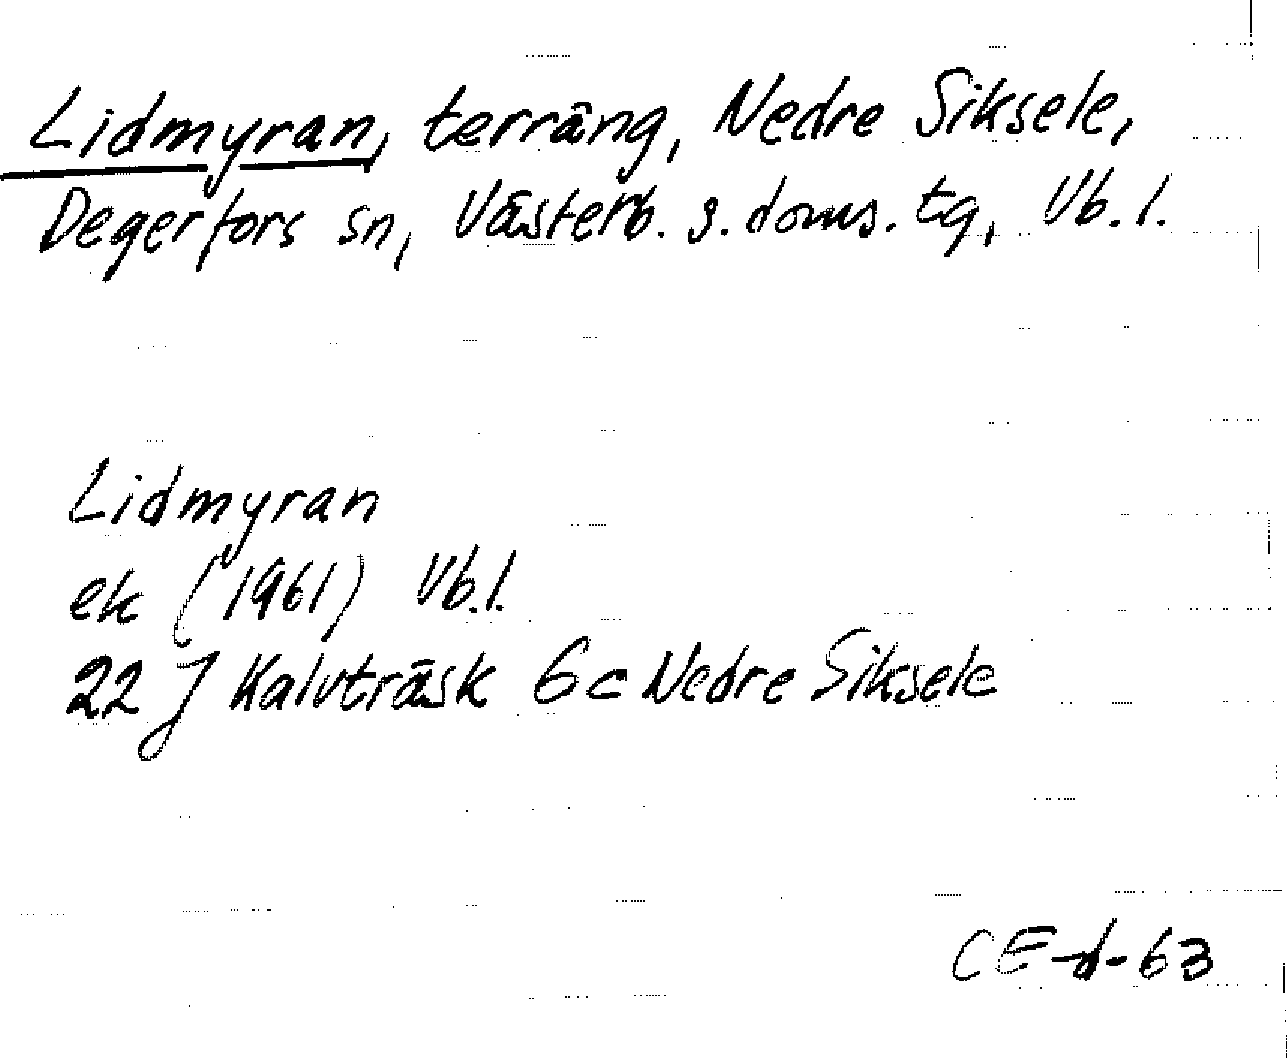 Lidmyran, terräng, Nedre Siksele,
Degerfors sn, Västerb. s. doms. tg, Vb. l.
Lidmyran
ek (1961) Vb. l.
22 J Kalvträsk 6c Nedre Siksele
CE-d-63